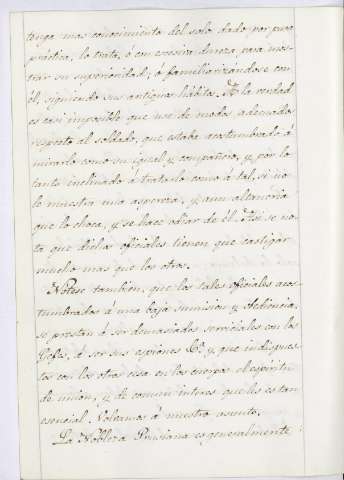 tenga mas conocimiento del solo dado por pura
práctica, lo trata, ó con excesiva dureza para mos-
trar su superioridad, ó familiarizándose con
él, siguiendo sus antiguos hábitos. A la verdad
es casi imposible que use de modos adecuados
respeto al soldado, que estaba acostumbrado á
mirarlo como su igual y compañero, y por lo
tanto inclinado á tratarlo como á tal, si no
le muestra una aspereza, y aun altaneria
que lo choca, y se hace odiar de él. Asi se no-
ta que dichos oficiales tienen que castigar
mucho mas que los otros.
Nótese tambien, que los tales oficiales acos-
tumbrados á una baja sumision y obediencia,
se prestan á ser demasiados serviciales con los
Gefes, á ser sus espiones &a. y que indispues-
tos con los otros cesa en los cuerpos el espíritu
de union, y de comun interes que les es tan
esencial. Volvamos á nuestro asunto.
La Nobleza Prusiana es generalmente